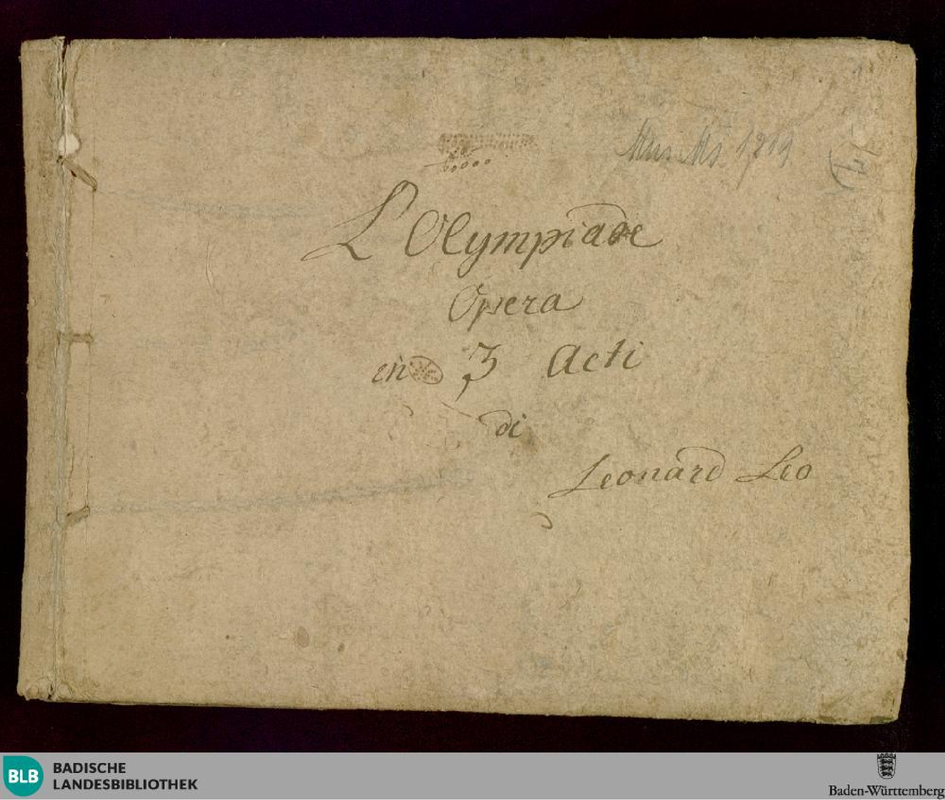 Mus. Ms. 1219
L'Olympiade
Opera
en 3 Acti
di
Leonard Leo
BLB
BADISCHE
LANDESBIBLIOTHEK
Baden-Württemberg